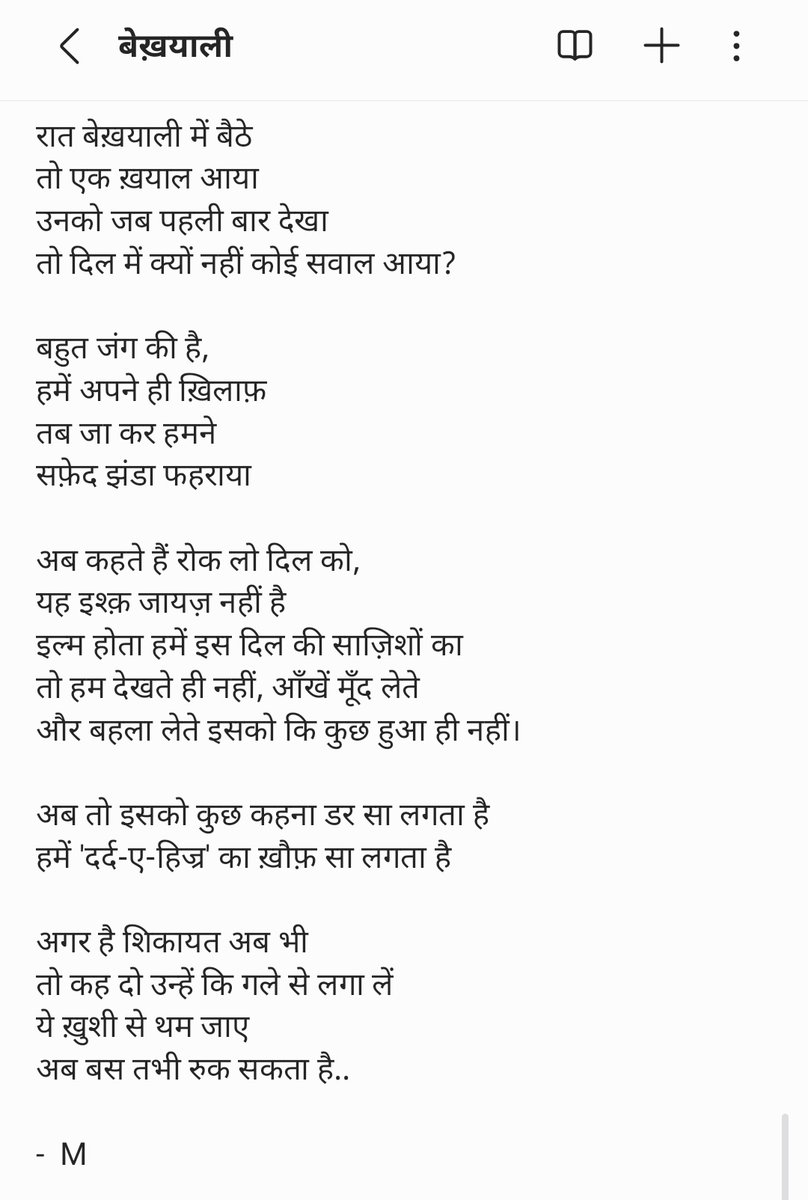 बेख़याली
रात बेख़याली में बैठे
तो एक ख़याल आया
उनको जब पहली बार देखा
तो दिल में क्यों नहीं कोई सवाल आया?
बहुत जंग की है,
हमें अपने ही ख़िलाफ़
तब जा कर हमने
सफ़ेद झंडा फहराया
अब कहते हैं रोक लो दिल को,
यह इश्क़ जायज़ नहीं है
इल्म होता हमें इस दिल की साज़िशों का
तो हम देखते ही नहीं, आँखें मूँद लेते
और बहला लेते इसको कि कुछ हुआ ही नहीं।
अब तो इसको कुछ कहना डर सा लगता है
हमें 'दर्द-ए-हिज्र' का ख़ौफ़ सा लगता है
अगर है शिकायत अब भी
तो कह दो उन्हें कि गले से लगा लें
ये ख़ुशी से थम जाए
अब बस तभी रुक सकता है..
- M